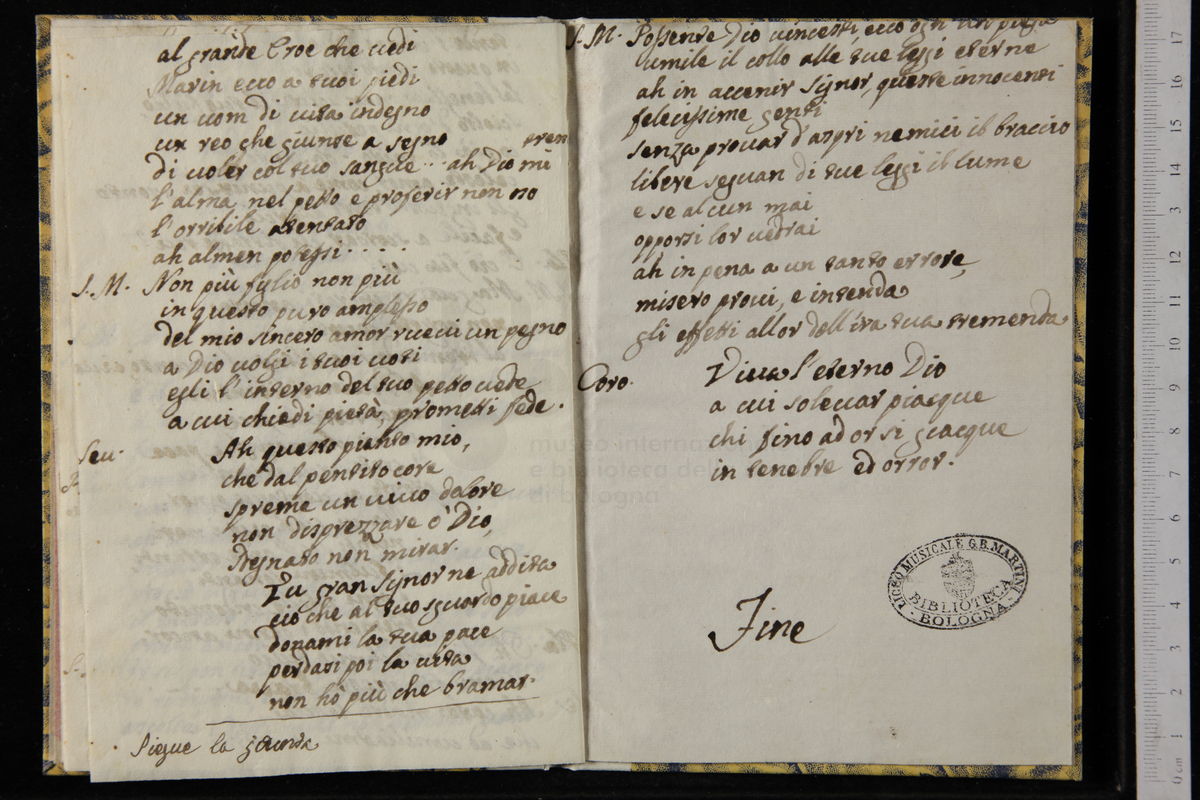 al grande Eroe che vedi
Marin ecco a tuoi piedi
un uom di vita indegno
un reo che giunse a segno
di voler col tuo sangue... ah Dio mi trem
l'alma nel petto e proferir non no
l'orribile atentato
ah almen potessi...
S. M. Non più figlio non più
in questo puro amplesso
del mio sincero amor ricevi un pegno
a Dio volgi i tuoi voti
egli l'interno del tuo petto vede
a cui chiedi pietà, prometti fede.
Sev. Ah questo pianto mio,
che dal pentito core
spreme un vivo dolore
non disprezzare ò Dio,
sdegnato non mirar.
Tu gran Signor ne addita
ciò che al tuo sguardo piace
donami la tua pace
perdasi poi la vita
non hò più che bramar.
Siegue la seconda
S. M. Possente Dio vincesti, ecco ogn'un piega
umile il collo alle tue leggi eterne
ah in accenir Signor, queste innocenti
felicissime genti
senza provar d'aspri nemici il braccio
libere seguan di tue leggi il lume
e se alcun mai
opporsi lor vedrai
ah in pena a un tanto errore,
misero provi, e intenda
gli effetti allor dell'ira tua tremenda
Coro. Viva l'eterno Dio
a cui solevar piacque
chi fino ad or si giacque
in tenebre ed orror.
Fine
LICEO MUSICALE G.B. MARTINI
BIBLIOTECA
BOLOGNA
museo internaz
e biblioteca de
di bologna